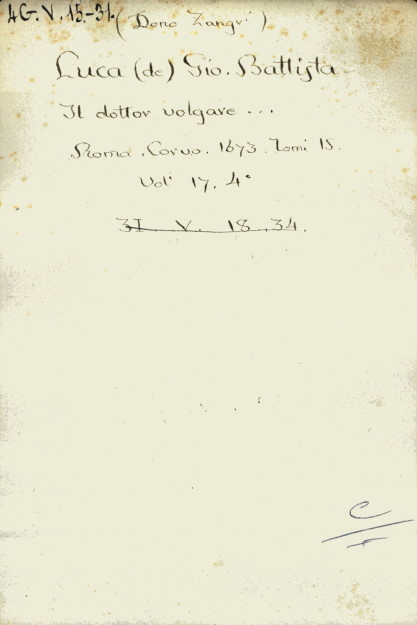 4G. V. 15.-31. (Dono Zangri)
Luca (de) Gio. Battista
Il dottor volgare ...
Roma. Corvo. 1673. Tomi 15.
Vol^i 17. 4°
31. V. 18.34.
C